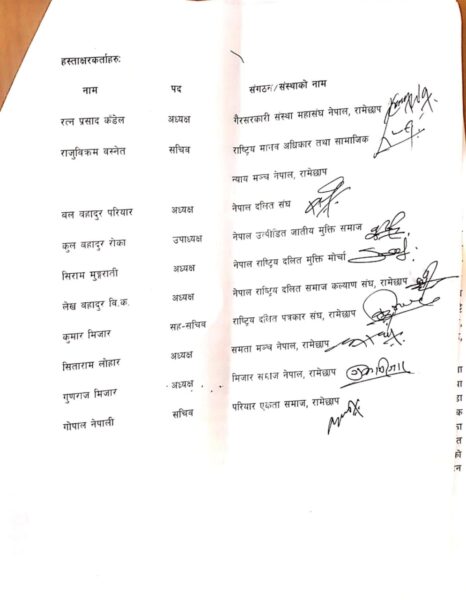 हस्ताक्षरकर्ताहरु:
नाम पद संगठन/संस्थाको नाम
रत्न प्रसाद कँडेल अध्यक्ष गैरसरकारी संस्था महासंघ नेपाल, रामेछाप
राजुविक्रम वस्नेत सचिव राष्ट्रिय मानव अधिकार तथा सामाजिक
न्याय मञ्च नेपाल, रामेछाप
बल बहादुर परियार अध्यक्ष नेपाल दलित संघ
कुल बहादुर रोका उपाध्यक्ष नेपाल उत्पीडित जातीय मुक्ति समाज
सिराम मुग्राती अध्यक्ष नेपाल राष्ट्रिय दलित मुक्ति मोर्चा
लेख बहादुर वि.क. अध्यक्ष नेपाल राष्ट्रिय दलित समाज कल्याण संघ, रामेछाप
कुमार मिजार सह-सचिव राष्ट्रिय दलित पत्रकार संघ, रामेछाप
सिताराम लोहार अध्यक्ष समता मञ्च नेपाल, रामेछाप
गुणराज मिजार अध्यक्ष मिजार समाज नेपाल, रामेछाप
गोपाल नेपाली सचिव परियार एकता समाज, रामेछाप